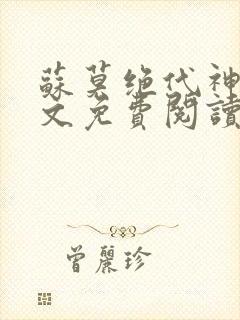 蘇莫绝代神
文免費閱讀
曾麗珍